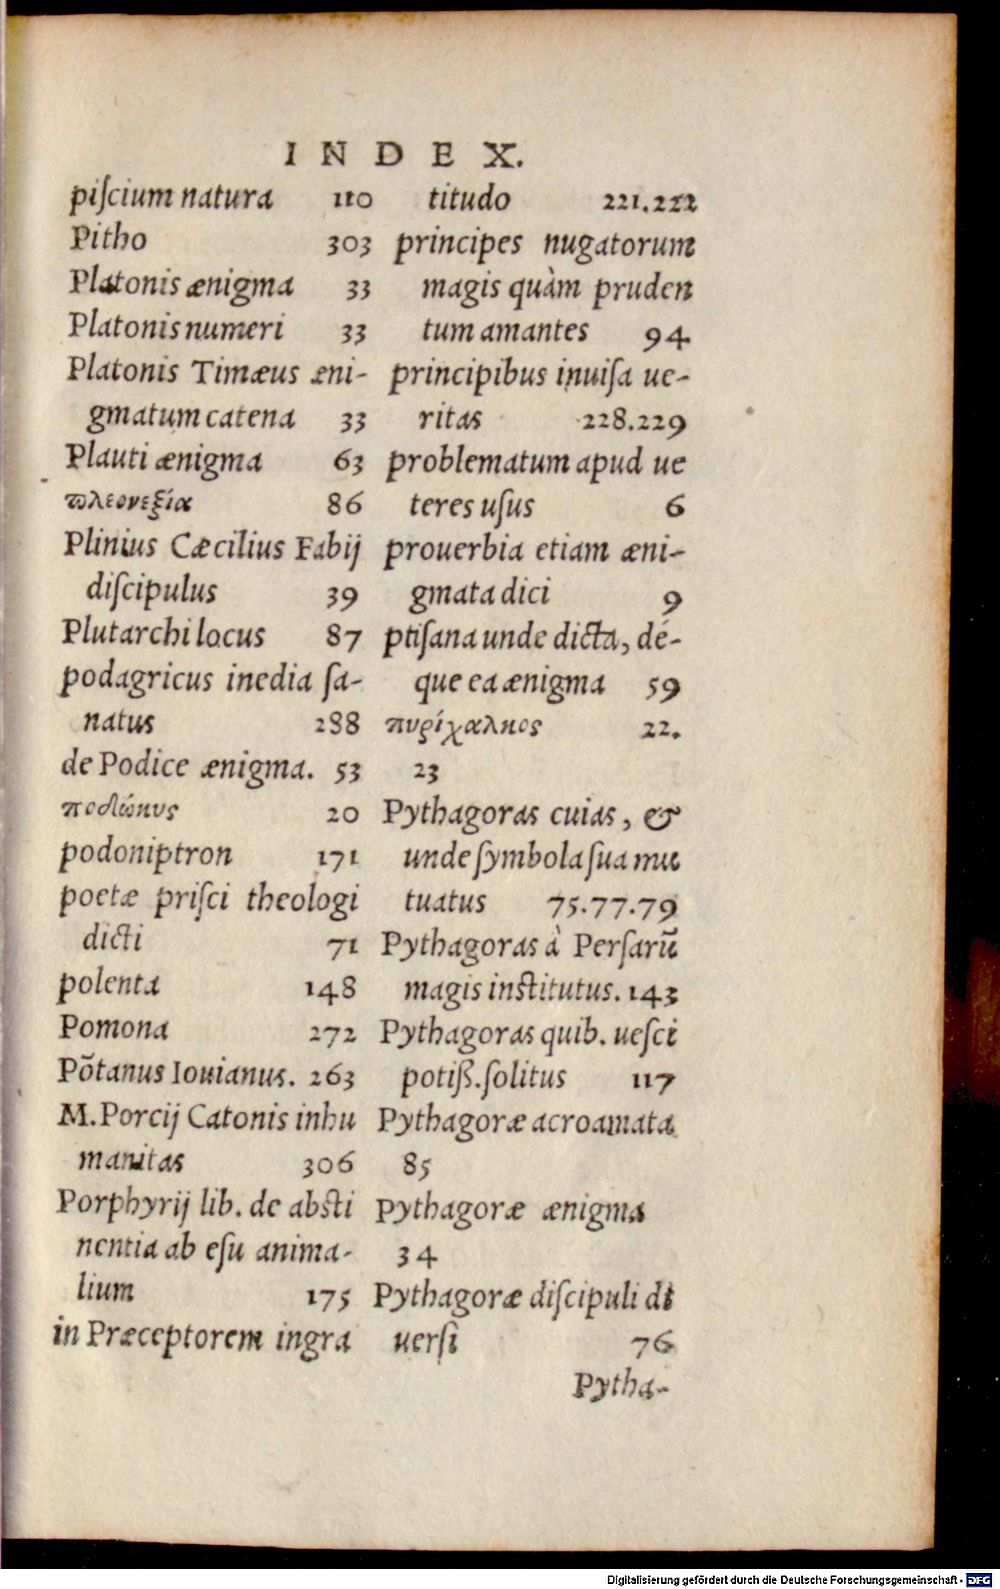 INDEX.
piſcium natura 110
Pitho 303
Platonis ænigma 33
Platonis numeri 33
Platonis Timæus æni-
gmatum catena 33
Plauti ænigma 63
πλεονεξία 86
Plinius Cæcilius Fabij
diſcipulus 39
Plutarchi locus 87
podagricus inedia ſa-
natus 288
de Podice ænigma. 53
ποδώκυς 20
podoniptron 171
poetæ priſci theologi
dicti 71
polenta 148
Pomona 272
Põtanus Iouianus. 263
M. Porcij Catonis inhu
manitas 306
Porphyrij lib. de abſti
nentia ab eſu anima-
lium 175
in Præceptorem ingra
titudo 221.222
principes nugatorum
magis quàm pruden
tum amantes 94
principibus inuiſa ue-
ritas 228.229
problematum apud ue
teres uſus 6
prouerbia etiam æni-
gmata dici 9
ptiſana unde dicta, dé-
que ea ænigma 59
πυρίχαλκος 22.
23
Pythagoras cuias, &
unde ſymbola ſua mu
tuatus 75.77.79
Pythagoras à Perſarũ
magis inſtitutus. 143
Pythagoras quib. ueſci
potiß. ſolitus 117
Pythagoræ acroamata
85
Pythagoræ ænigma
34
Pythagoræ diſcipuli di
uerſi 76
Pytha-
Digitalisierung gefördert durch die Deutsche Forschungsgemeinschaft - DFG